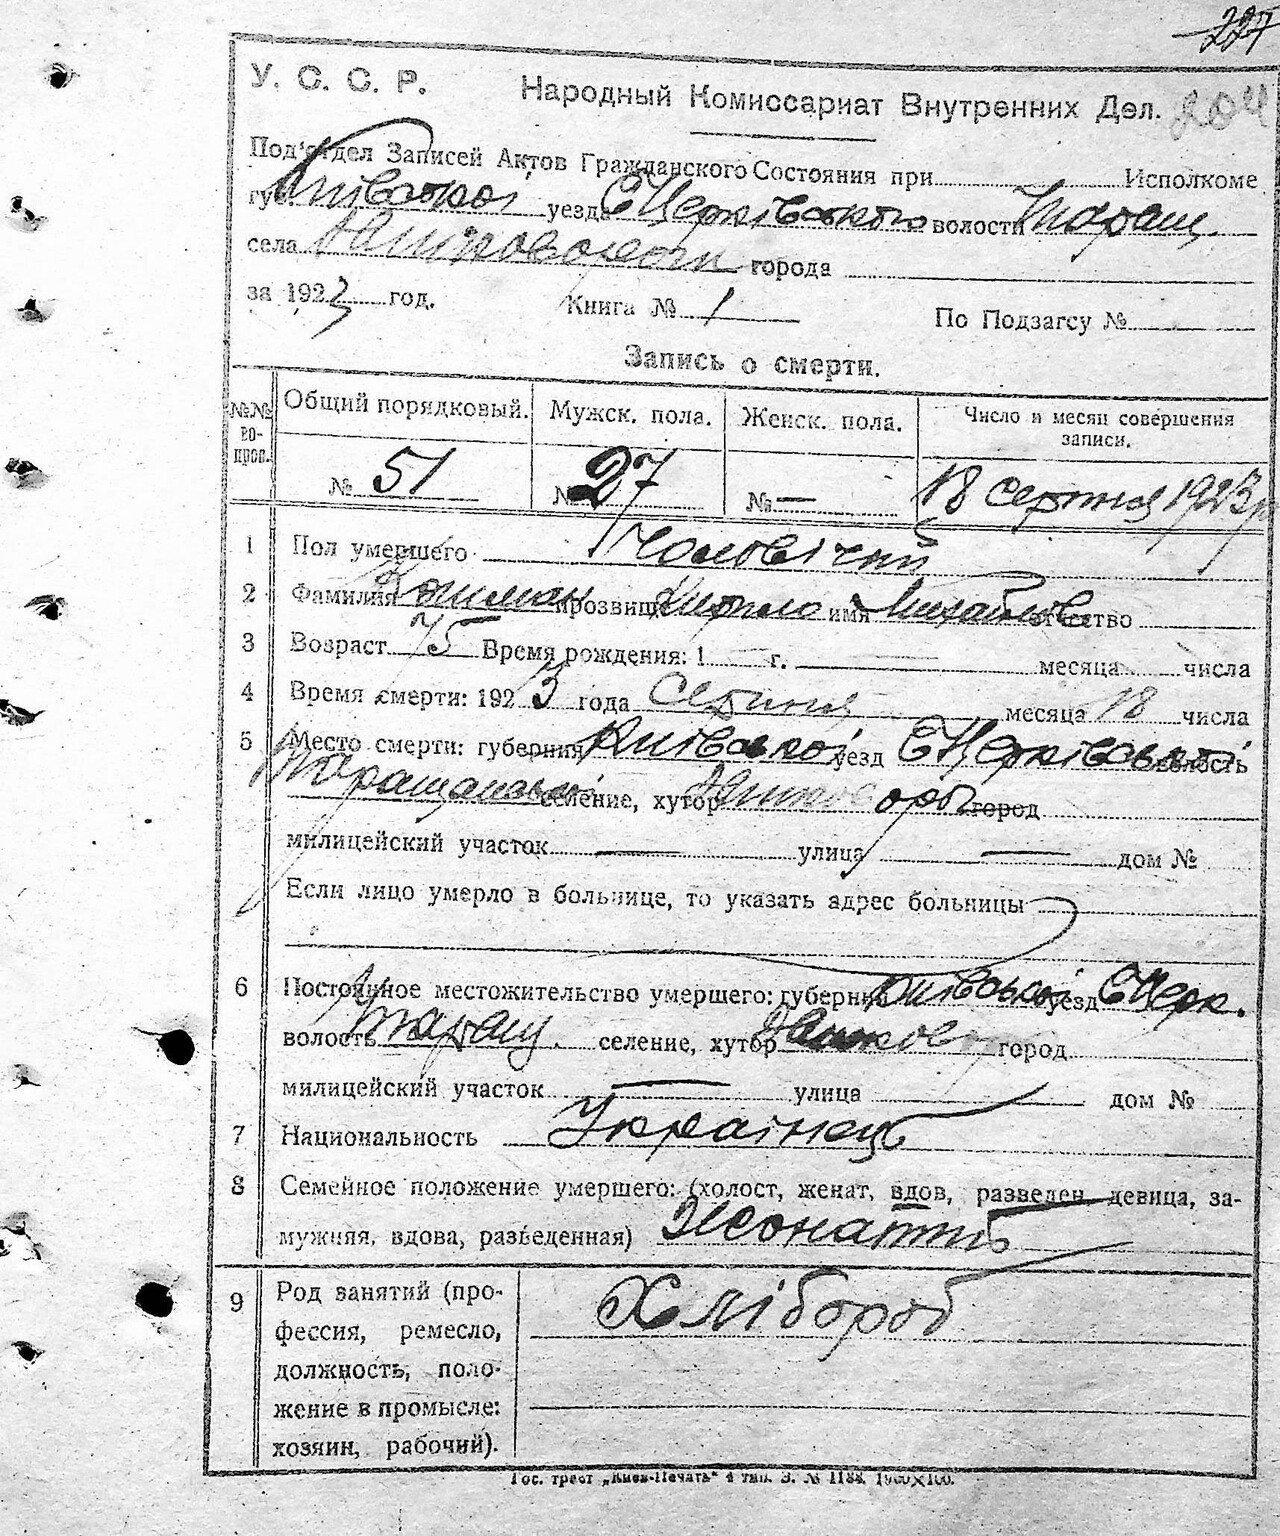 227
У. С. С. Р. Народный Комиссариат Внутренних Дел. 204
Под'отдел Записей Актов Гражданского Состояния при Исполкоме
губ. Київської уезда БЦерківського волости Таращ.
села города
за 1923 год. Книга № 1 По Подзагсу №
Запись о смерти.
№№ во- прос. Общий порядковый. Мужск. пола. Женск. пола. Число и месяц совершения записи.
№ 51 № 27 № — 18 серпня 1923 р
1 Пол умершего Чоловічий
2 Фамилия прозвище Кирило имя Михайлов отчество
3 Возраст 75 Время рождения: 1 г. — месяца числа
4 Время смерти: 1923 года Серпня месяца 18 числа
5 Место смерти: губерния Київської уезд БЦерківської волость
Таращанської селение, хутор город
милицейский участок — улица — дом №
Если лицо умерло в больнице, то указать адрес больницы
6 Постоянное местожительство умершего: губерния Київської уезд БЦерк.
волость Таращ. селение, хутор город
милицейский участок — улица — дом №
7 Национальность Українець
8 Семейное положение умершего: (холост, женат, вдов, разведен, девица, за-
мужняя, вдова, разведенная) Жонатий
9 Род занятий (про- Хлібороб
фессия, ремесло,
должность, поло-
жение в промысле:
хозяин, рабочий).
Гос. трест „Киев-Печать" 4 тип. З. № 1188. 1900×100.